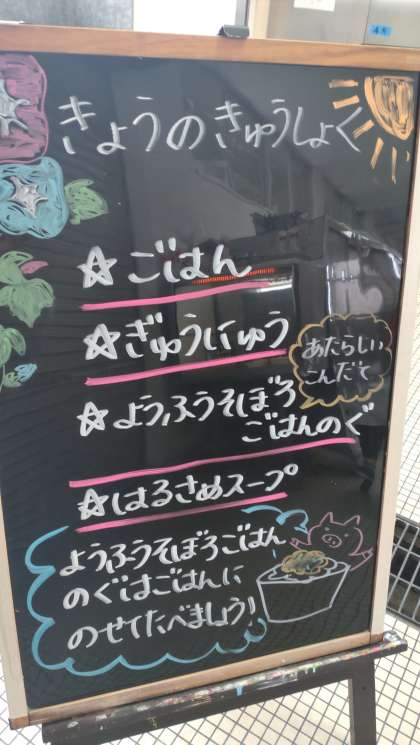 きょうのきゅうしょく
☆ごはん
☆ぎゅうにゅう
あたらしい
こんだて
☆ようふうそぼろ
ごはんのぐ
☆はるさめスープ
ようふうそぼろごはん
のぐはごはんに
のせてたべましょう!